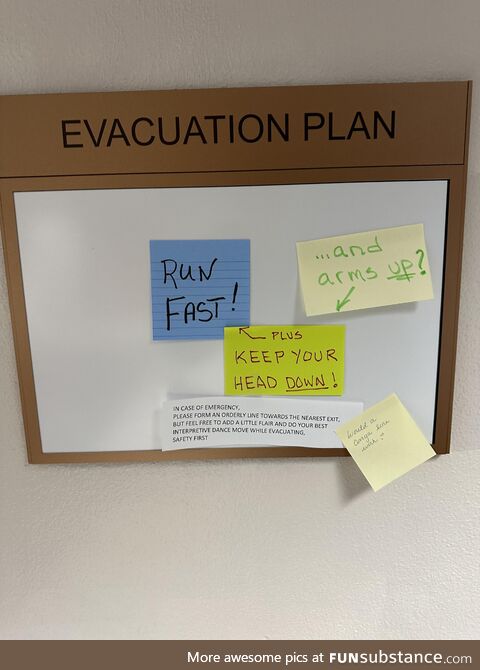 EVACUATION PLAN
RUN
FAST!
...and
arms up?
PLUS
KEEP YOUR
HEAD DOWN!
IN CASE OF EMERGENCY,
PLEASE FORM AN ORDERLY LINE TOWARDS THE NEAREST EXIT,
BUT FEEL FREE TO ADD A LITTLE FLAIR AND DO YOUR BEST
INTERPRETIVE DANCE MOVE WHILE EVACUATING,
SAFETY FIRST
Would a
conga line
work?
More awesome pics at FUNsubstance.com